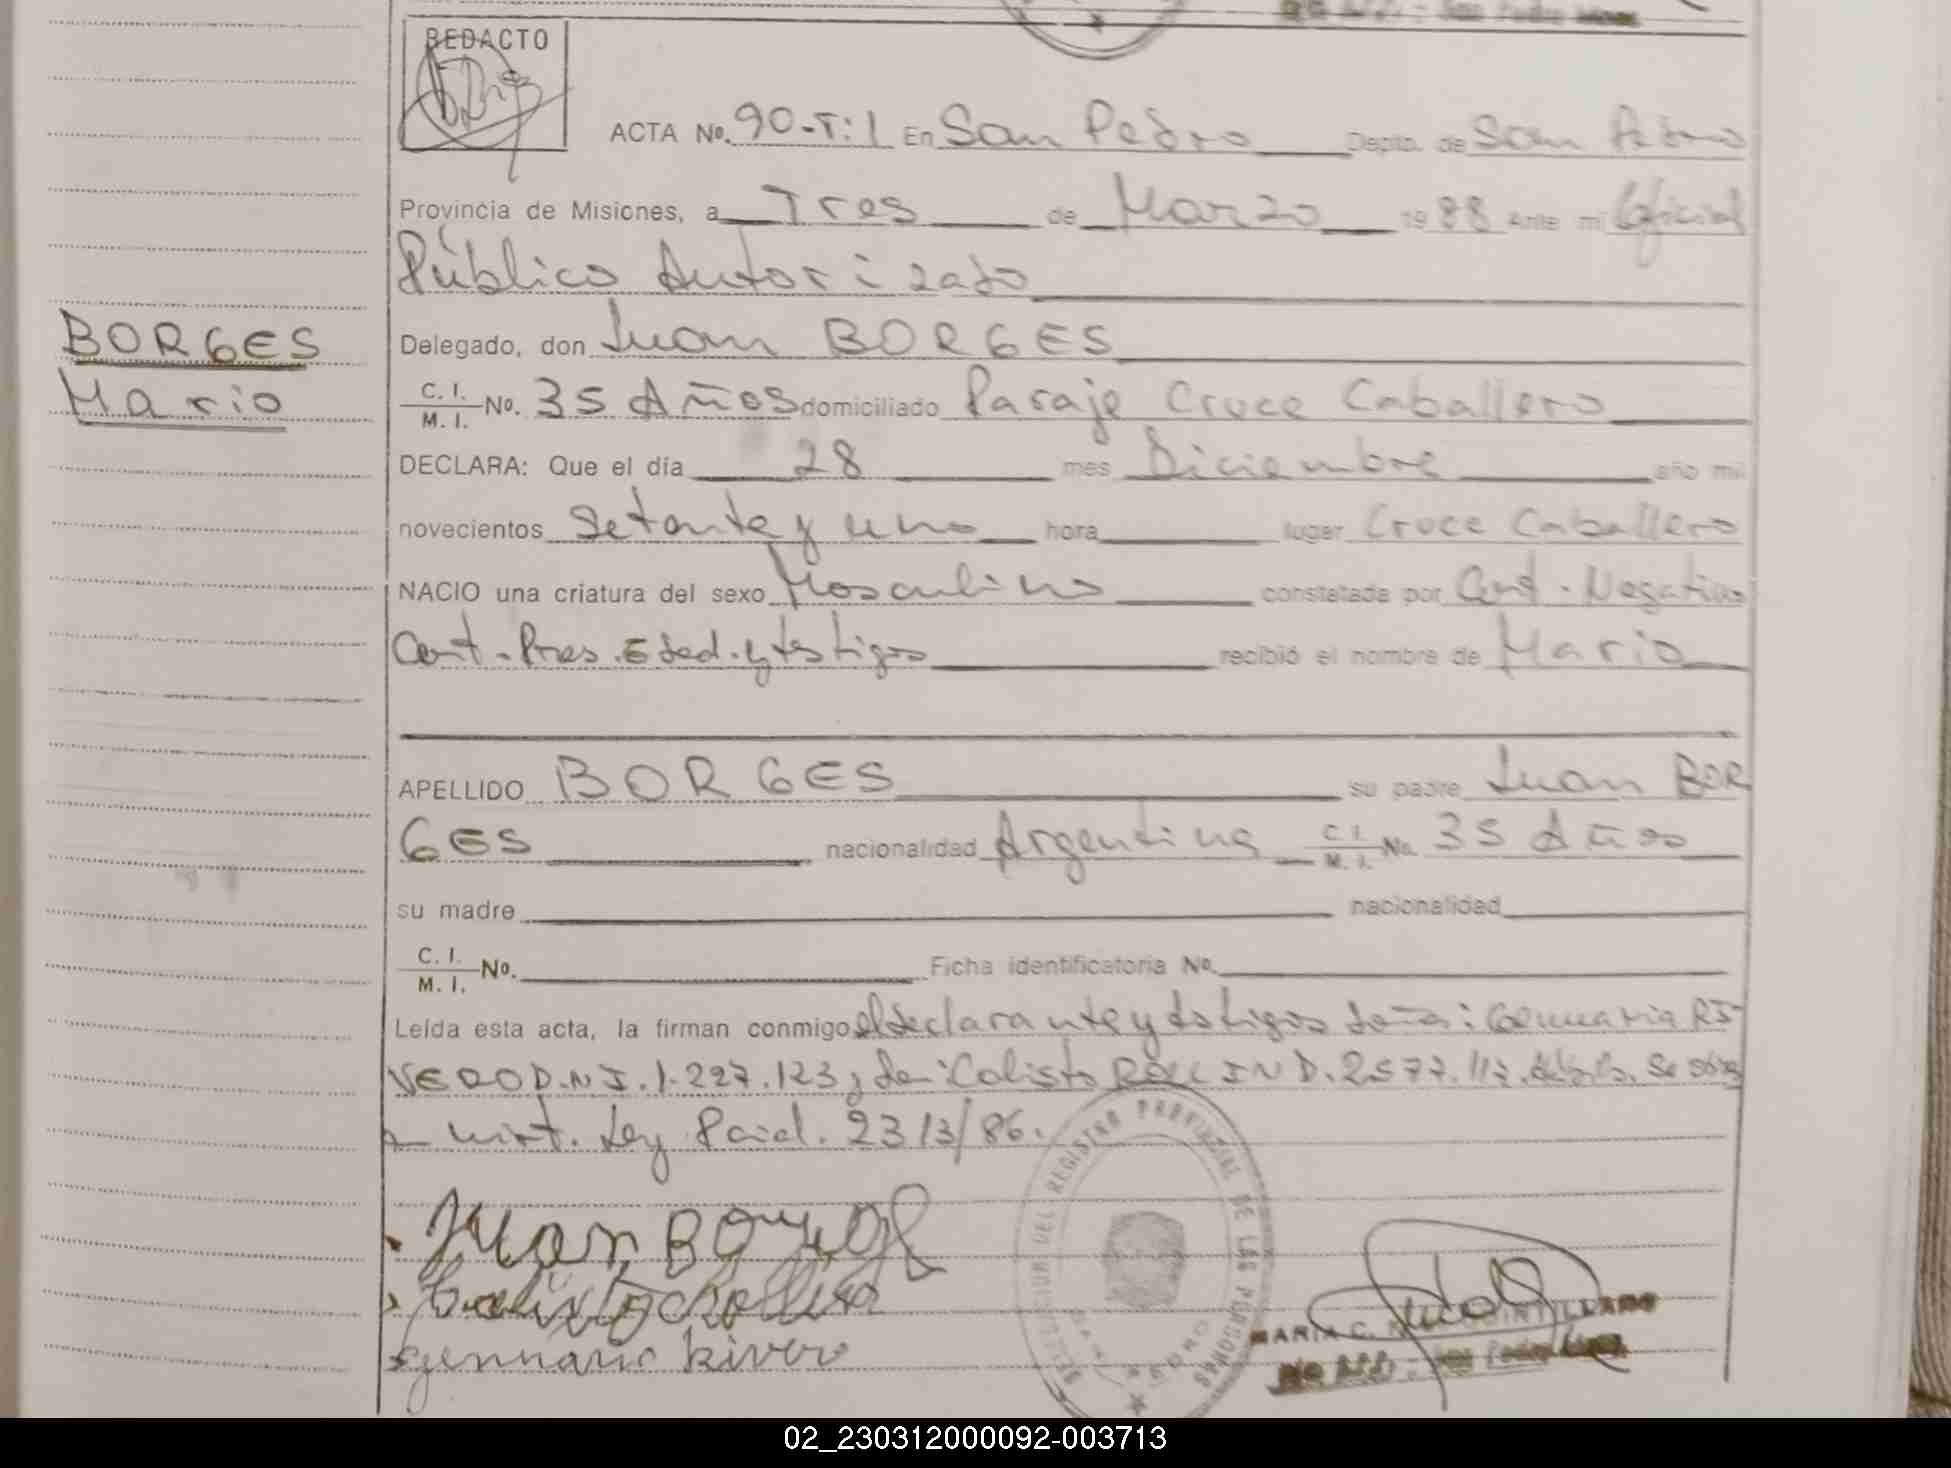 REDACTO
ACTA Nº. 90-T:1 En San Pedro Depto. de San Pedro
Provincia de Misiones, a Tres de Marzo 1988 Ante mi Oficial
Público Autorizado
BORGES
Delegado, don Juan BORGES
Mario
C. I. M. I. Nº. 35 Años domiciliado Paraje Cruce Caballero
DECLARA: Que el día 28 mes Diciembre año mil
novecientos Setenta y uno hora lugar Cruce Caballero
NACIO una criatura del sexo Masculino constatada por Cert. Negativo
Cert. Pres. Edad. y testigos recibió el nombre de Mario
APELLIDO BORGES su padre Juan BOR
GES nacionalidad Argentina C. I. M. I. No. 35 Años
su madre nacionalidad
C. I. M. I. Nº. Ficha identificatoria Nº.
Leída esta acta, la firman conmigo el declarante y testigos doña: Genuaria RI
VERO D.N.I. 1.227.123, don: Calisto D. 2577.117.
Ley 2313/86.
Juan Borges
gennario Rivero
DEL REGISTRO PROVINCIAL DE LAS PERSONAS
MARIA C.
02_230312000092-003713